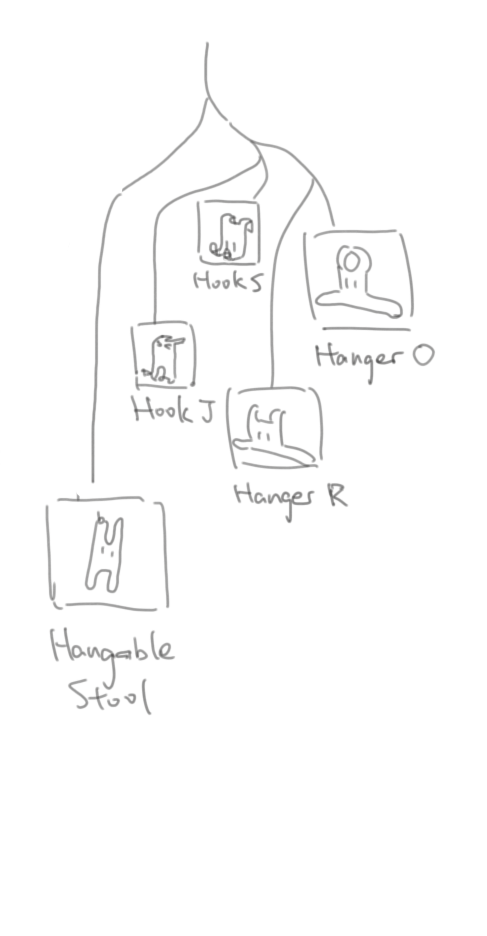 Hook S
Hanger O
Hook J
Hanger R
Hangable
Stool